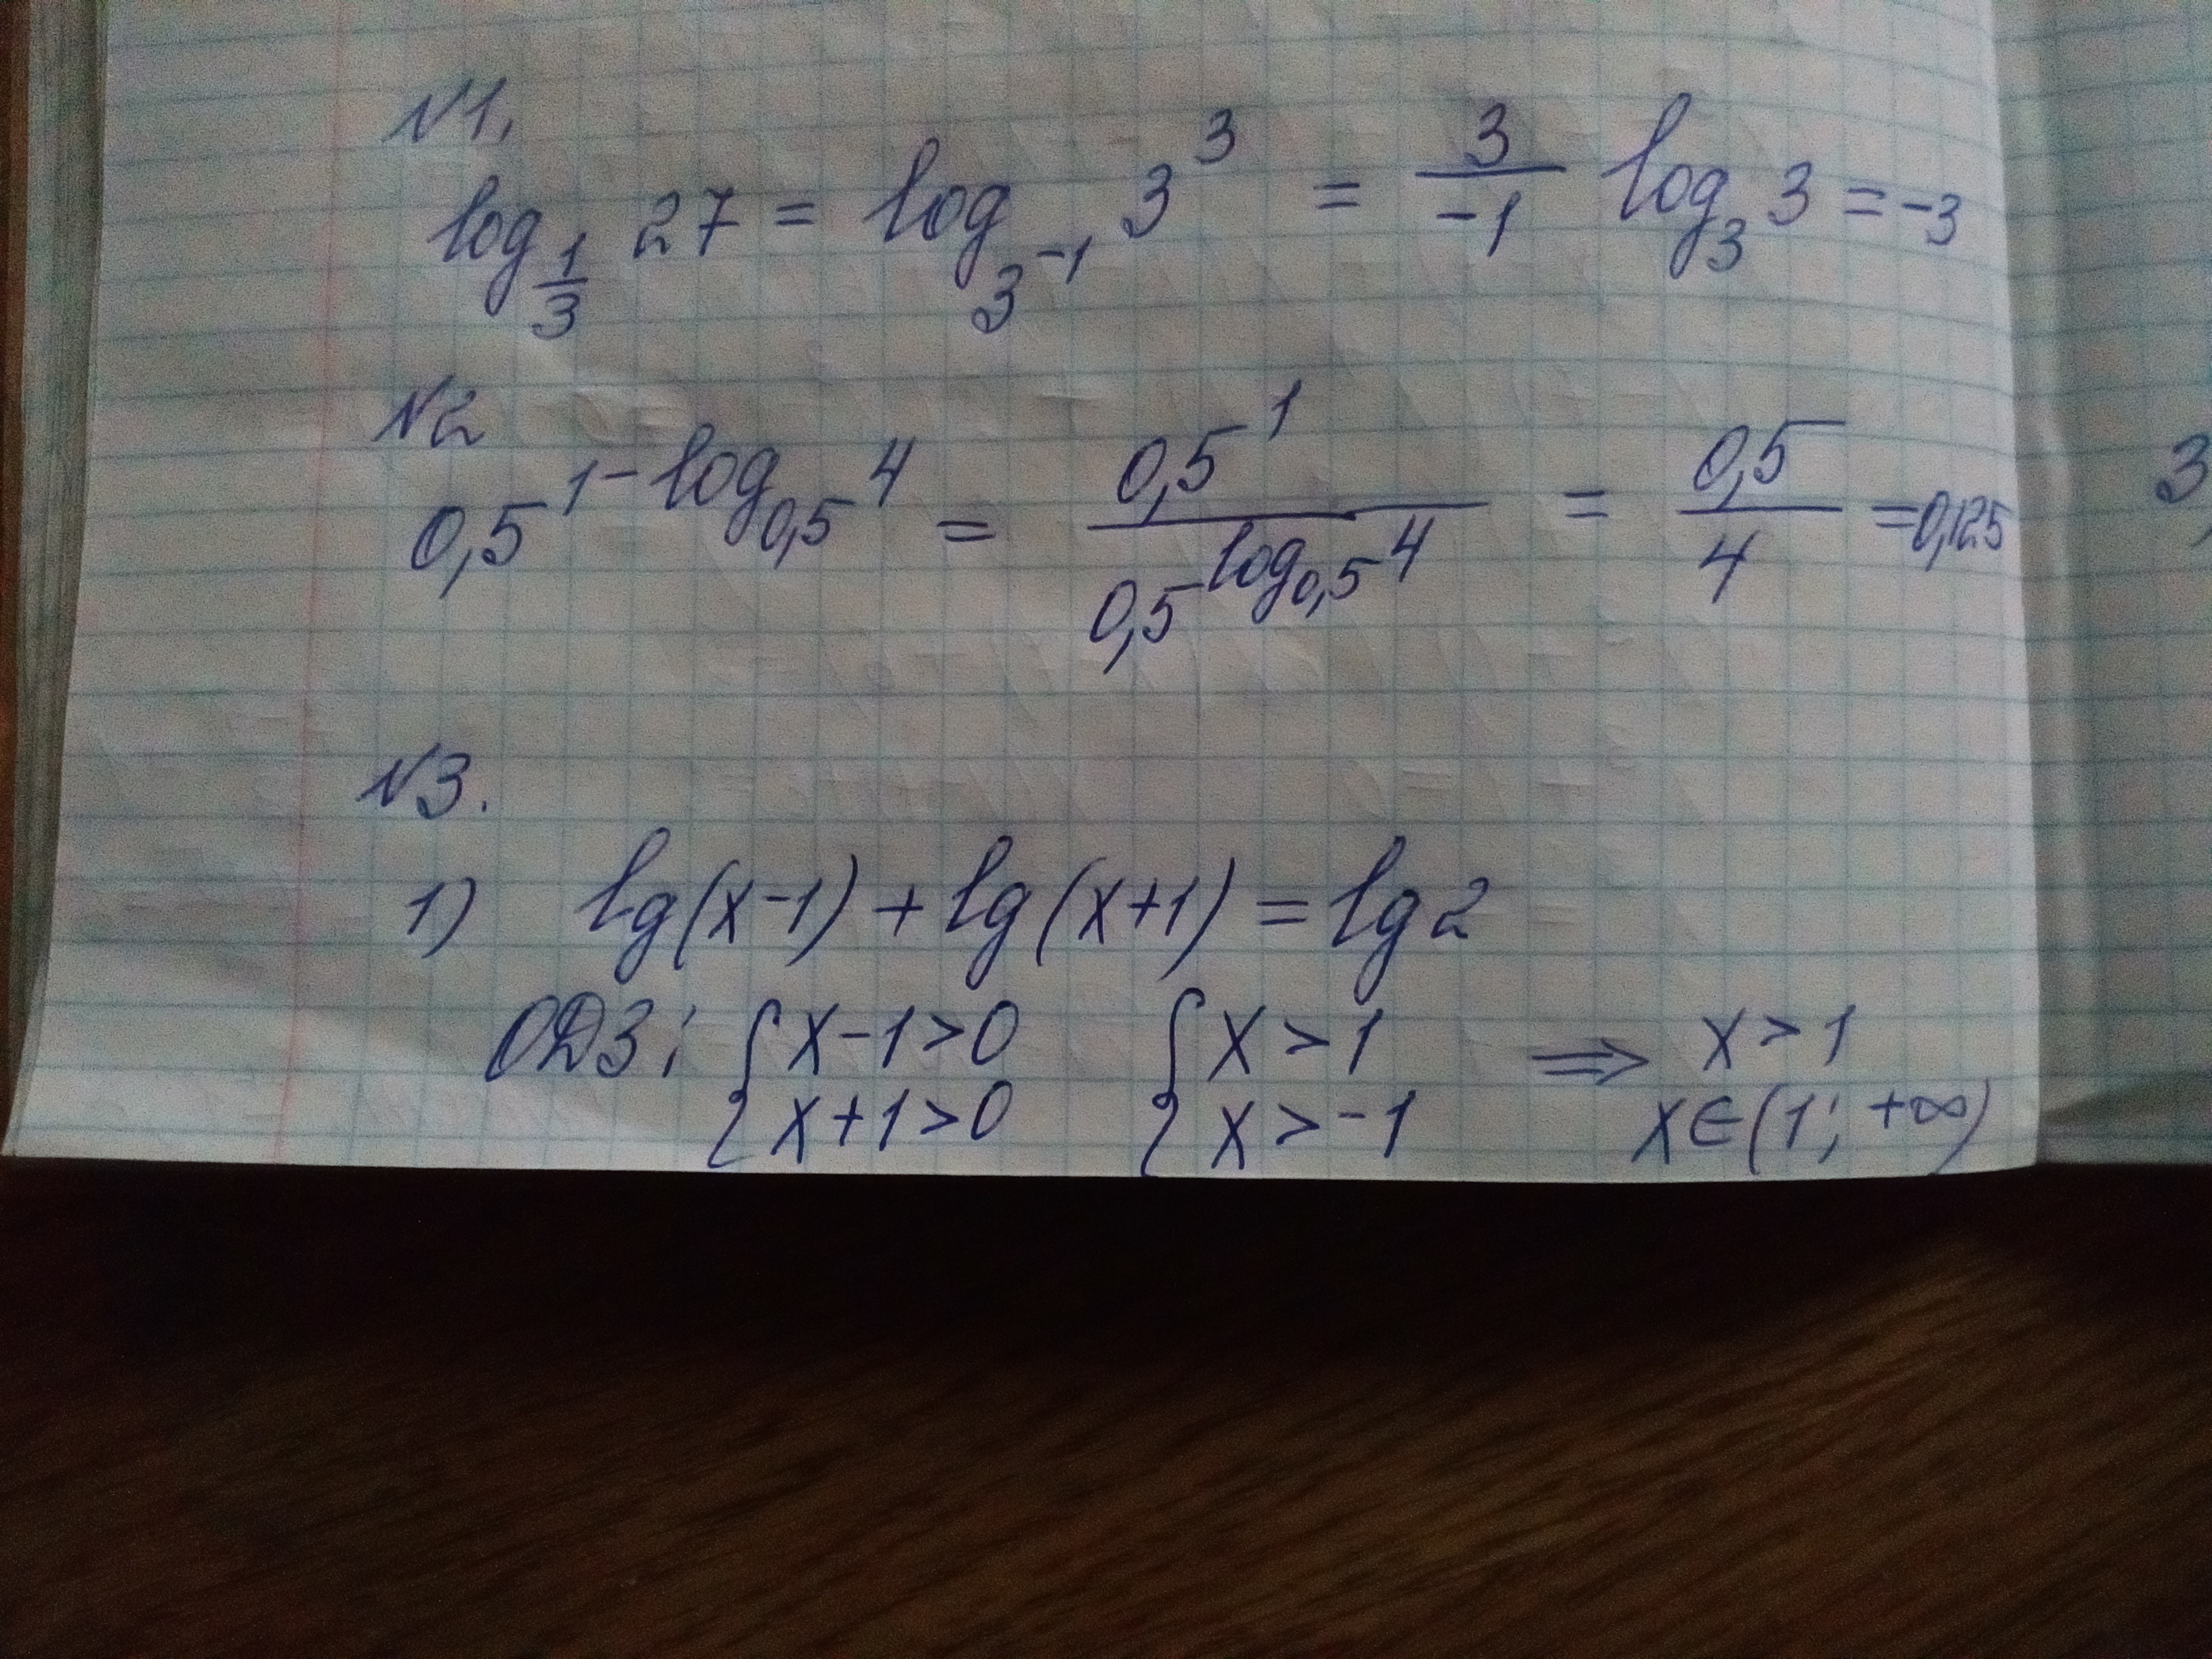 №1.
log_{1/3} 27 = log_{3^{-1}} 3^3 = 3/-1 log_3 3 = -3
№2
0,5^{1-log_{0,5} 4} = 0,5^1/0,5^{log_{0,5} 4} = 0,5/4 = 0,125
3
№3.
1) lg(x-1) + lg(x+1) = lg 2
ОДЗ: { x-1>0 { x>1 ⇒ x>1
x+1>0 x>-1 x∈(1; +∞)